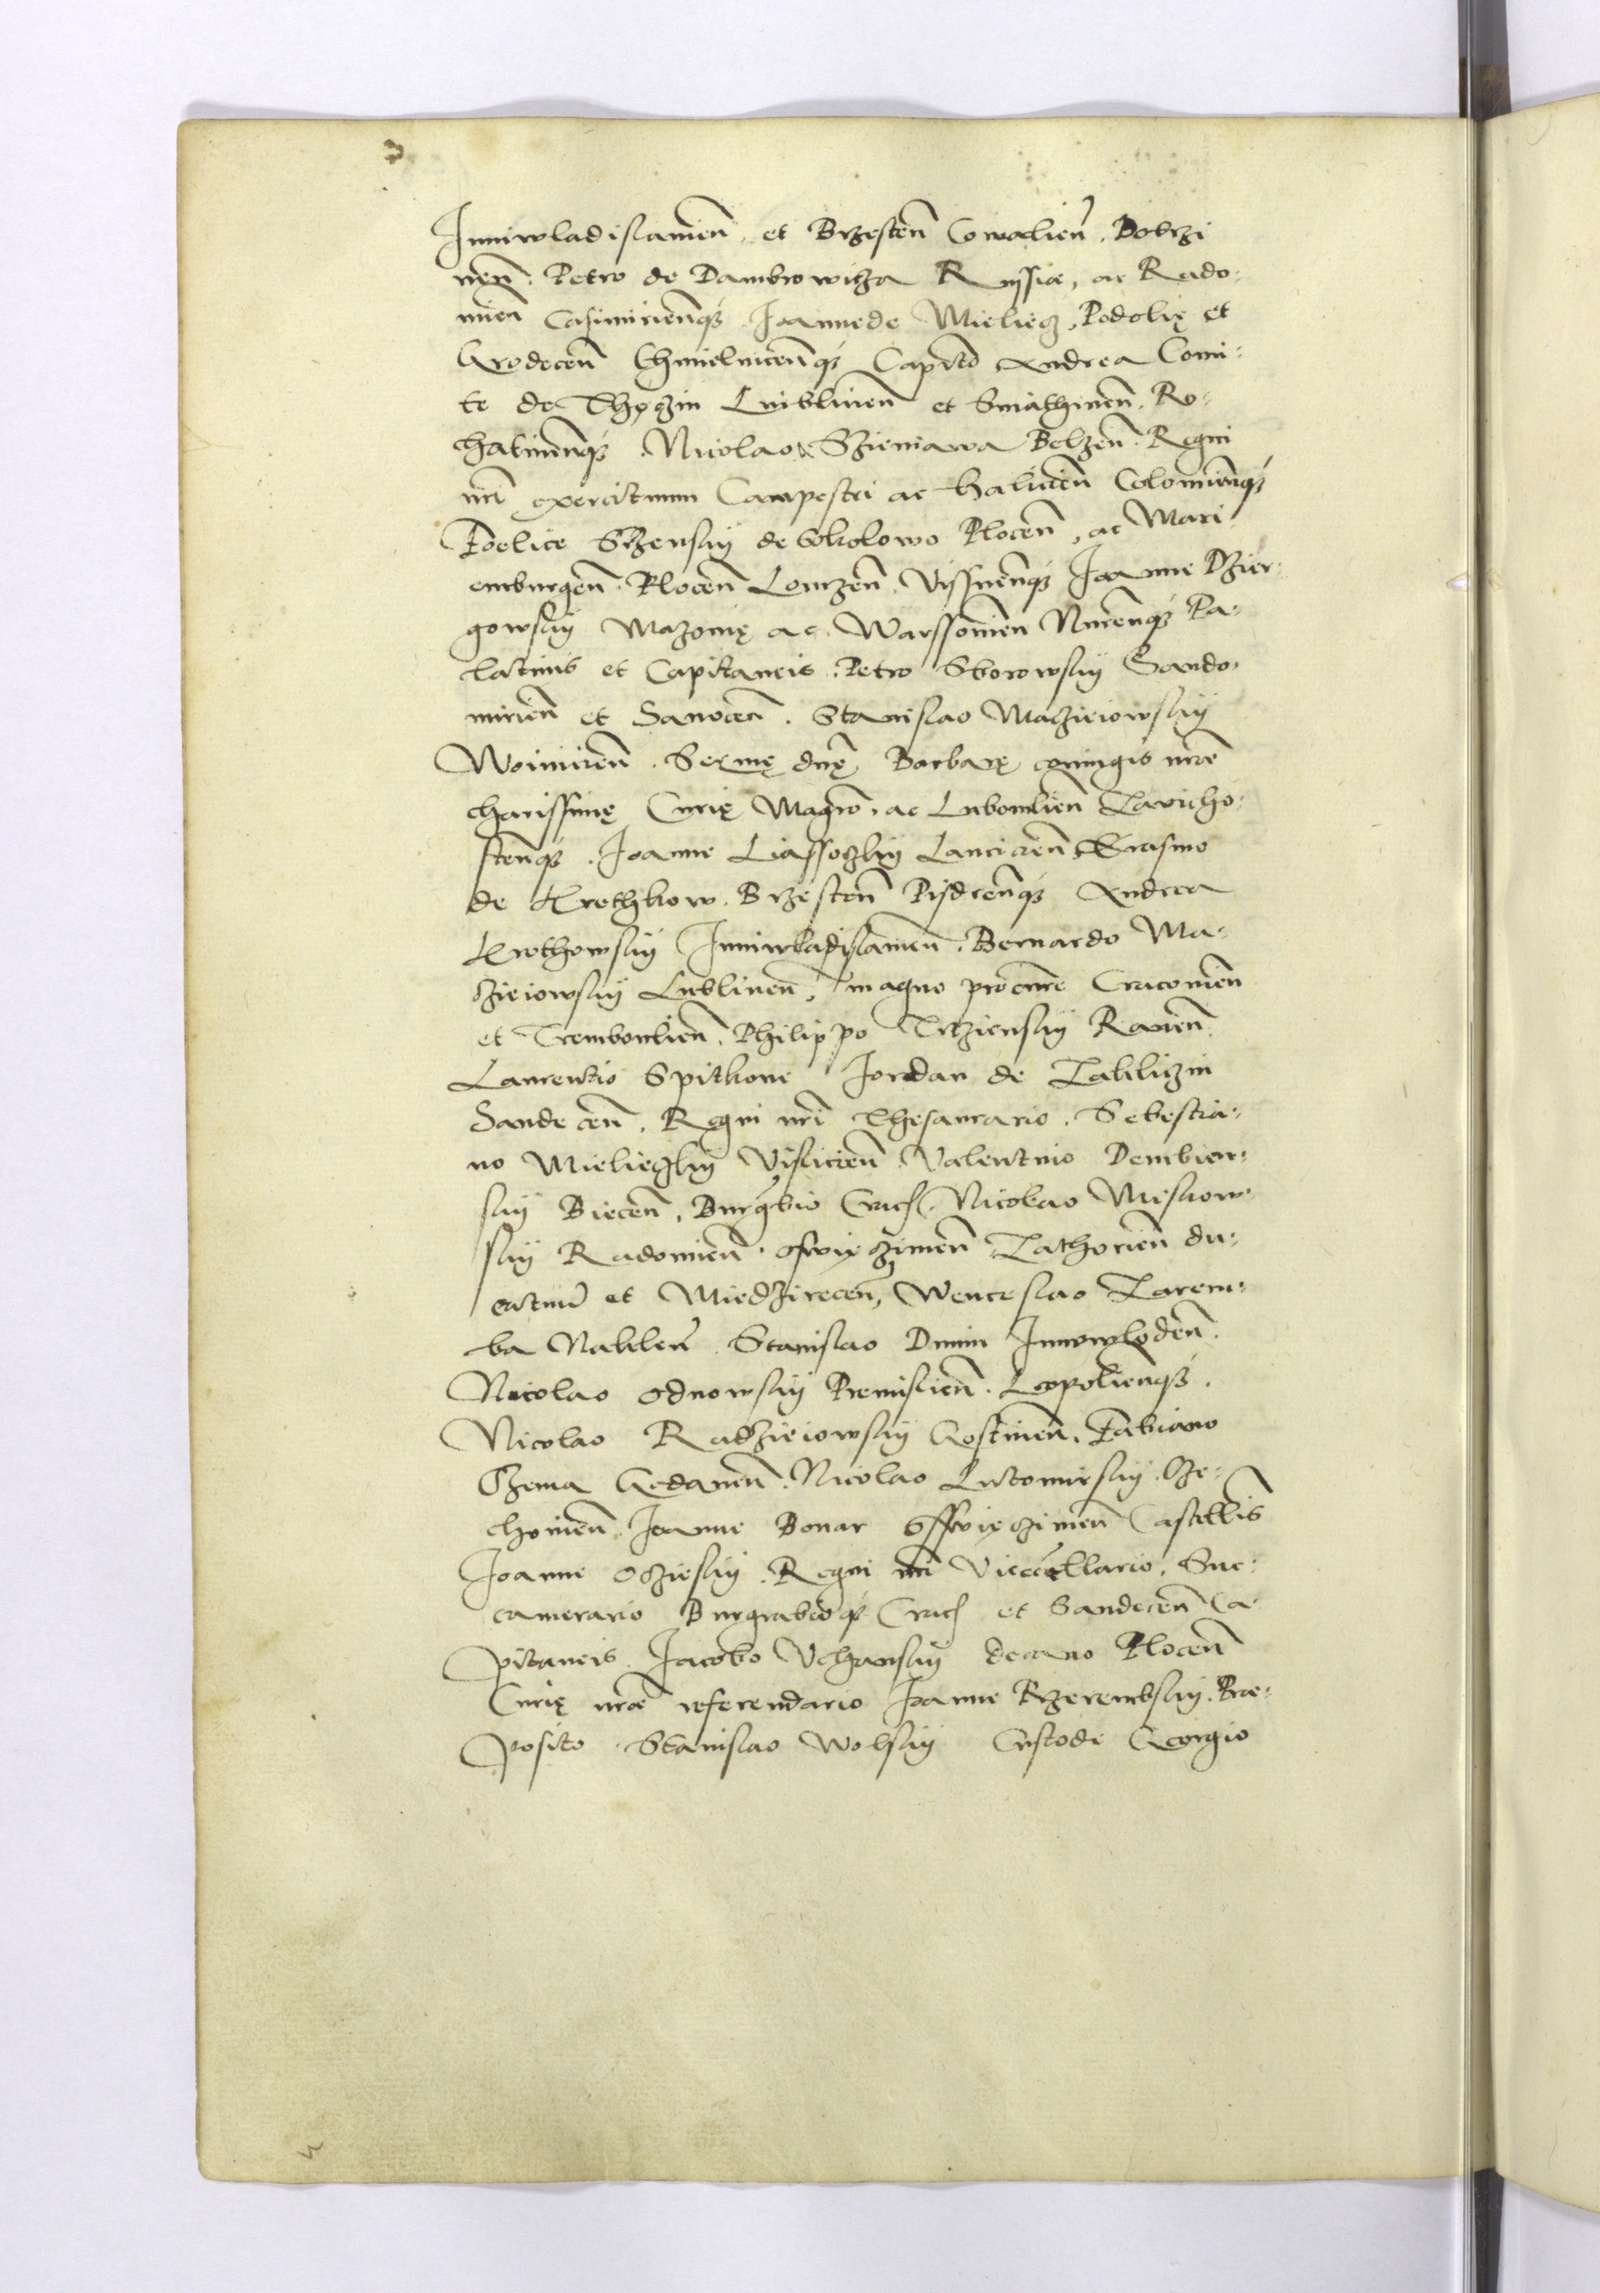 Junivvladislauien̄ et Brzesten̄ Cowalien̄. Dobrzi
nen̄. Petro de Dambrowicza Russiæ, ac Rado-
mien̄ Casimirien̄qꝫ Joanne de Mieliecz, Podolię et
Grodecen̄ Chmielnicen̄qꝫ Capit̄o Andrea Comi-
te de Thęczin Lublinen̄ et Sniathinen̄, Ro-
hatinen̄qꝫ Nicolao Szieniawa Belzen̄. Regni
nr̄i exercituum Campestri ac Halicien̄ Colomien̄qꝫ
Foelice Srzensky de Sokolowo Plocen̄, ac Mari
emburgen̄. Plocen̄ Lomzen̄. Vissnen̄qꝫ Joanne Dzier-
gowsky Mazouię ac Warssouien̄ Nuren̄qꝫ Pa-
latinis et Capitaneis. Petro Sborowsky Sando-
mirien̄ et Sanocen̄. Stanislao Maczieiowsky
Woiniren̄. Sermę dnę Barbarę coniugis nr̄æ
charissimę Curię Magr̄o, ac Lubomlien̄ Zawicho-
sten̄qꝫ. Joanne Liassoczky Lancicien̄ Erasmo
de Krethkow. Brzesten̄ Pisdren̄qꝫ Andrea
Krethowsky Junivvladislauien̄. Bernardo Ma-
czieiowsky Lublinen̄, magno procur̄e Cracouien̄
et Trembowlien̄. Philippo Trziensky Rauien̄.
Laurentio Spitkone Jordan de Zakliczin
Sandecen̄. Regni nr̄i Thesaurario. Sebestia-
no Mielieczky Vislicien̄ Valentino Dembien-
sky Biecen̄, Burgbio Crac. Nicolao Miskow-
sky Radomien̄. Oswięczimen̄ Zathorien̄ du-
catuū et Miedzirecen̄, Wenceslao Zarem-
ba Naklen̄. Stanislao Dunin Junowlodzen̄.
Nicolao Odnowsky Premislien̄. Leopolien̄qꝫ.
Nicolao Radzieiowsky Gostinen̄. Fabiano
Czema Gedanen̄. Nicolao Lutomirsky. Cze-
chouien̄. Joanne Bonar Osswięczimen̄ Castellis
Joanne Ocziesky. Regni nr̄i Vicecellario, Suc-
camerario Burgrabioqꝫ Crac et Sandecen̄ Ca-
pitaneis. Jacobo Vchansky decano Plocen̄
Curię nr̄æ referendario Joanne Przerembsky. Præ-
posito. Stanislao Wolsky Custode Georgio